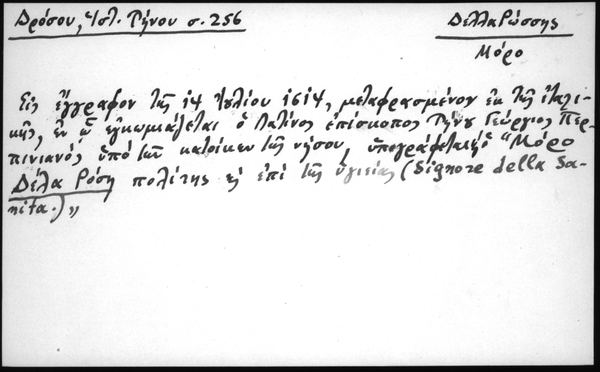 Δρόσου, Ἱστ. Τήνου σ. 256
Δελλαρώσσης
Μόρο
Εἰς ἔγγραφον τῆς 14 Ἰουλίου 1614, μεταφρασμένον ἐκ τῆς ἰταλι-
κῆς, ἐν ᾧ ἐγκωμιάζεται ὁ Λατῖνος ἐπίσκοπος Τήνου Γεώργιος Περ-
πινιανός ὑπό τῶν κατοίκων τῆς νήσου, ὑπογράφεται ὁ "Μόρο
Δέλα Ρόση πολίτης εἷ ἐπί τῆς ὑγιείας (Signore della Sa-
nita.)„